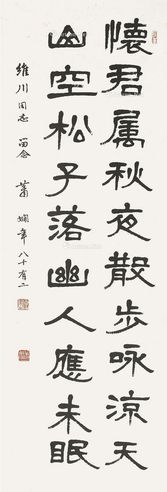 懷君属秋夜散步咏涼天
山空松子落幽人應未眠
維川同志 留念
蕭嫻年八十有二